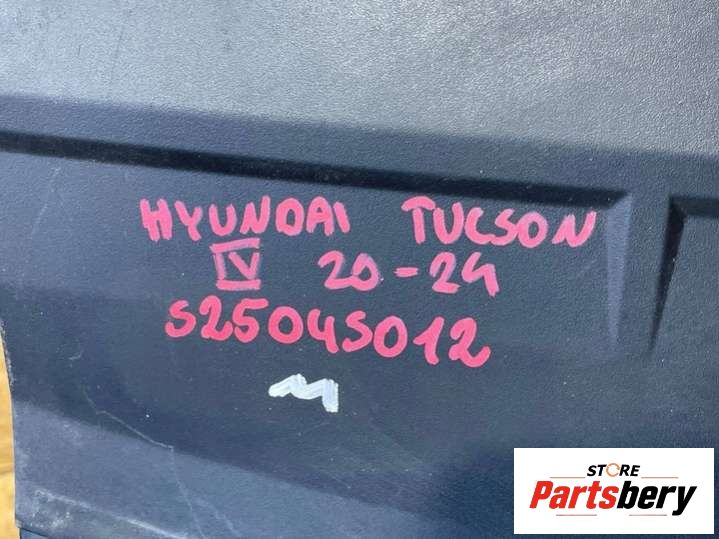 HYUNDAI TUCSON
IV 20-24
S2504S012
M
STORE
Partsbery